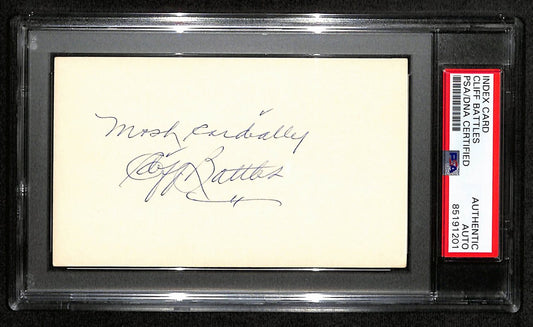 Most Cordially
Cliff Battles
INDEX CARD
CLIFF BATTLES
PSA/DNA CERTIFIED
PSA
AUTHENTIC
AUTO
85191201